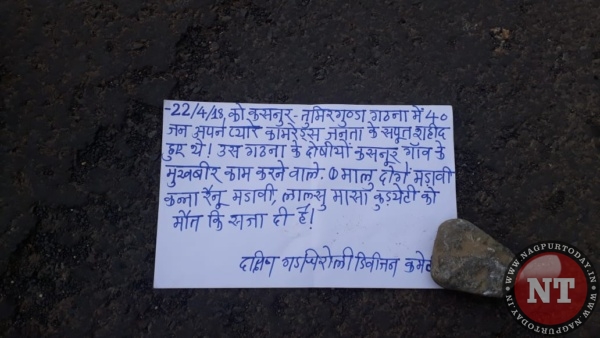 -22/4/18, को कसनुर-तुमिरगुण्डा गठना में 40
जन अपने प्यारे कामरेड्स जनता के सपूत शहीद
हुए थे। उस गठना के दोषीयों कसनूर गाँव के
मुखबीर काम करने वाले. ① मालु दोगे मडावी
कन्ना रैनू मडावी, लालसु मासा कुड़येटी को
मौत कि सजा दी हैं!
दाक्षिण गडचिरोली डिवीजन कमेट
NT
WWW.NAGPURTODAY.IN
WWW.NAGPURTODAY.IN